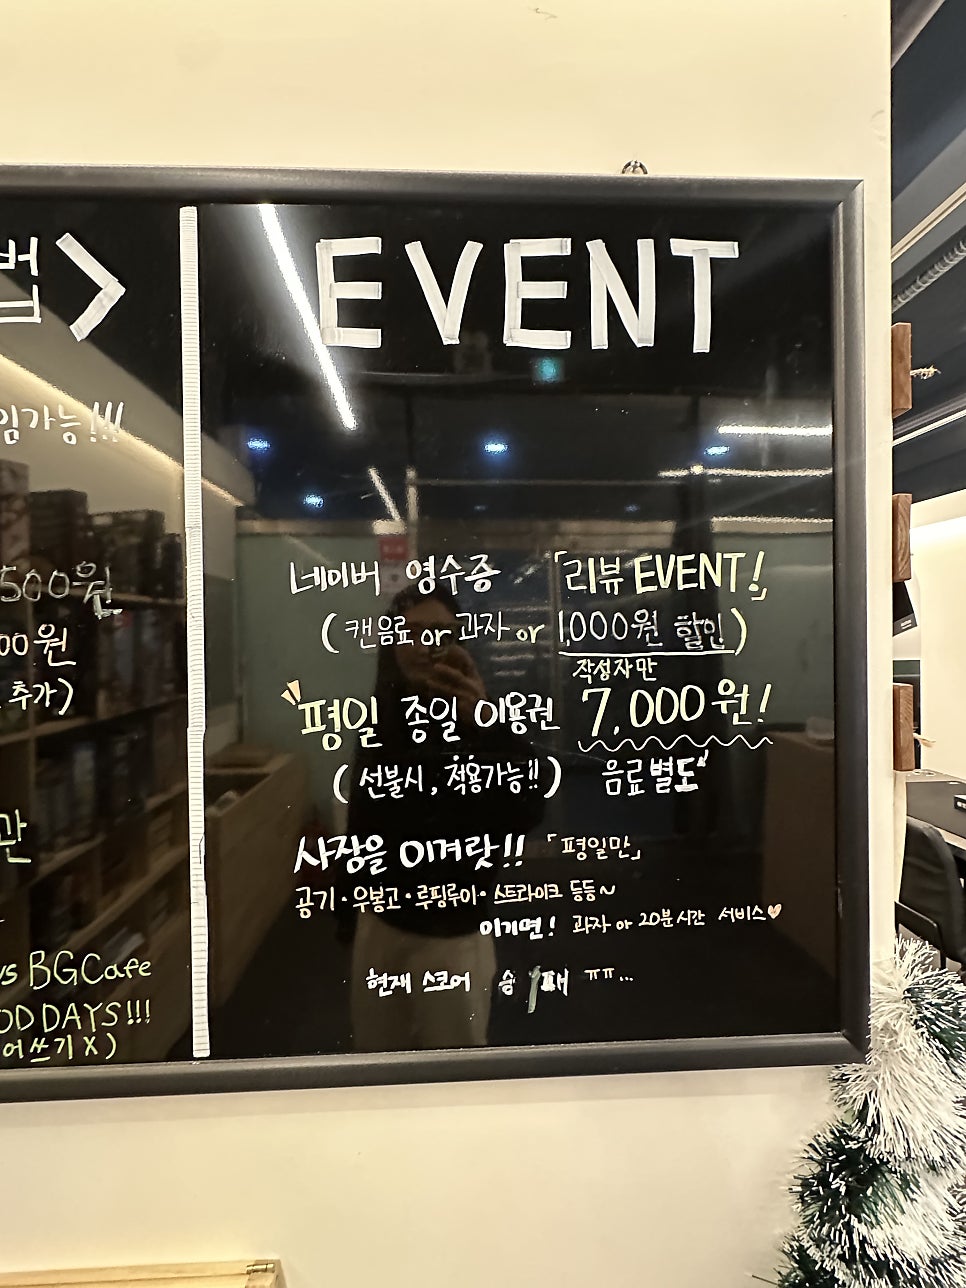 법>
임가능!!!
500원
00원
추가)
관
BGCafe
OD DAYS!!!
어쓰기 X)
EVENT
네이버 영수증 「리뷰 EVENT!」
(캔음료 or 과자 or 1,000원 할인)
작성자만
평일 종일 이용권 7,000원!
(선불시, 적용가능!!) 음료별도
사장을 이겨랏!! 「평일만」
공기·우봉고·루핑루이·스트라이크 등등~
이기면! 과자 or 20분 시간 서비스♡
현재 스코어 승 패 ㅠㅠ...